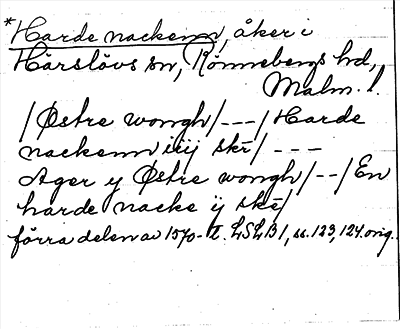 *Harde nackenn, åker i
Härslövs sn, Rönnebergs hd,
Malm. l.
/Østre wongh/---/Harde
nackenn iiij skr/ ---
Ager y Østre wongh/--/En
harde nacke ij skr/
förra delen av 1570-t. LSLB 1, ss. 123, 124. orig.